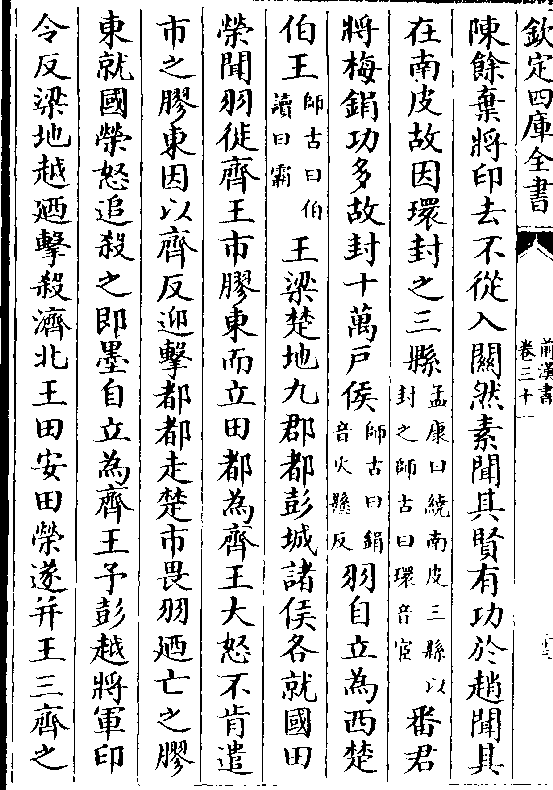 欽定四庫全書
前漢書
卷三十一
陳餘棄將印去不從入關然素聞其賢有功於趙聞其
在南皮故因環封之三縣孟康曰繞南皮三縣以封之師古曰環音宦番君
將梅鋗功多故封十萬戸侯師古曰鋗音火縣反羽自立為西楚
伯王師古曰伯讀曰霸王梁楚地九郡都彭城諸侯各就國田
榮聞羽徙齊王市膠東而立田都為齊王大怒不肯遣
市之膠東因以齊反迎擊都都走楚市畏羽廼亡之膠
東就國榮怒追殺之即墨自立為齊王予彭越將軍印
令反梁地越廼擊殺濟北王田安田榮遂并王三齊之